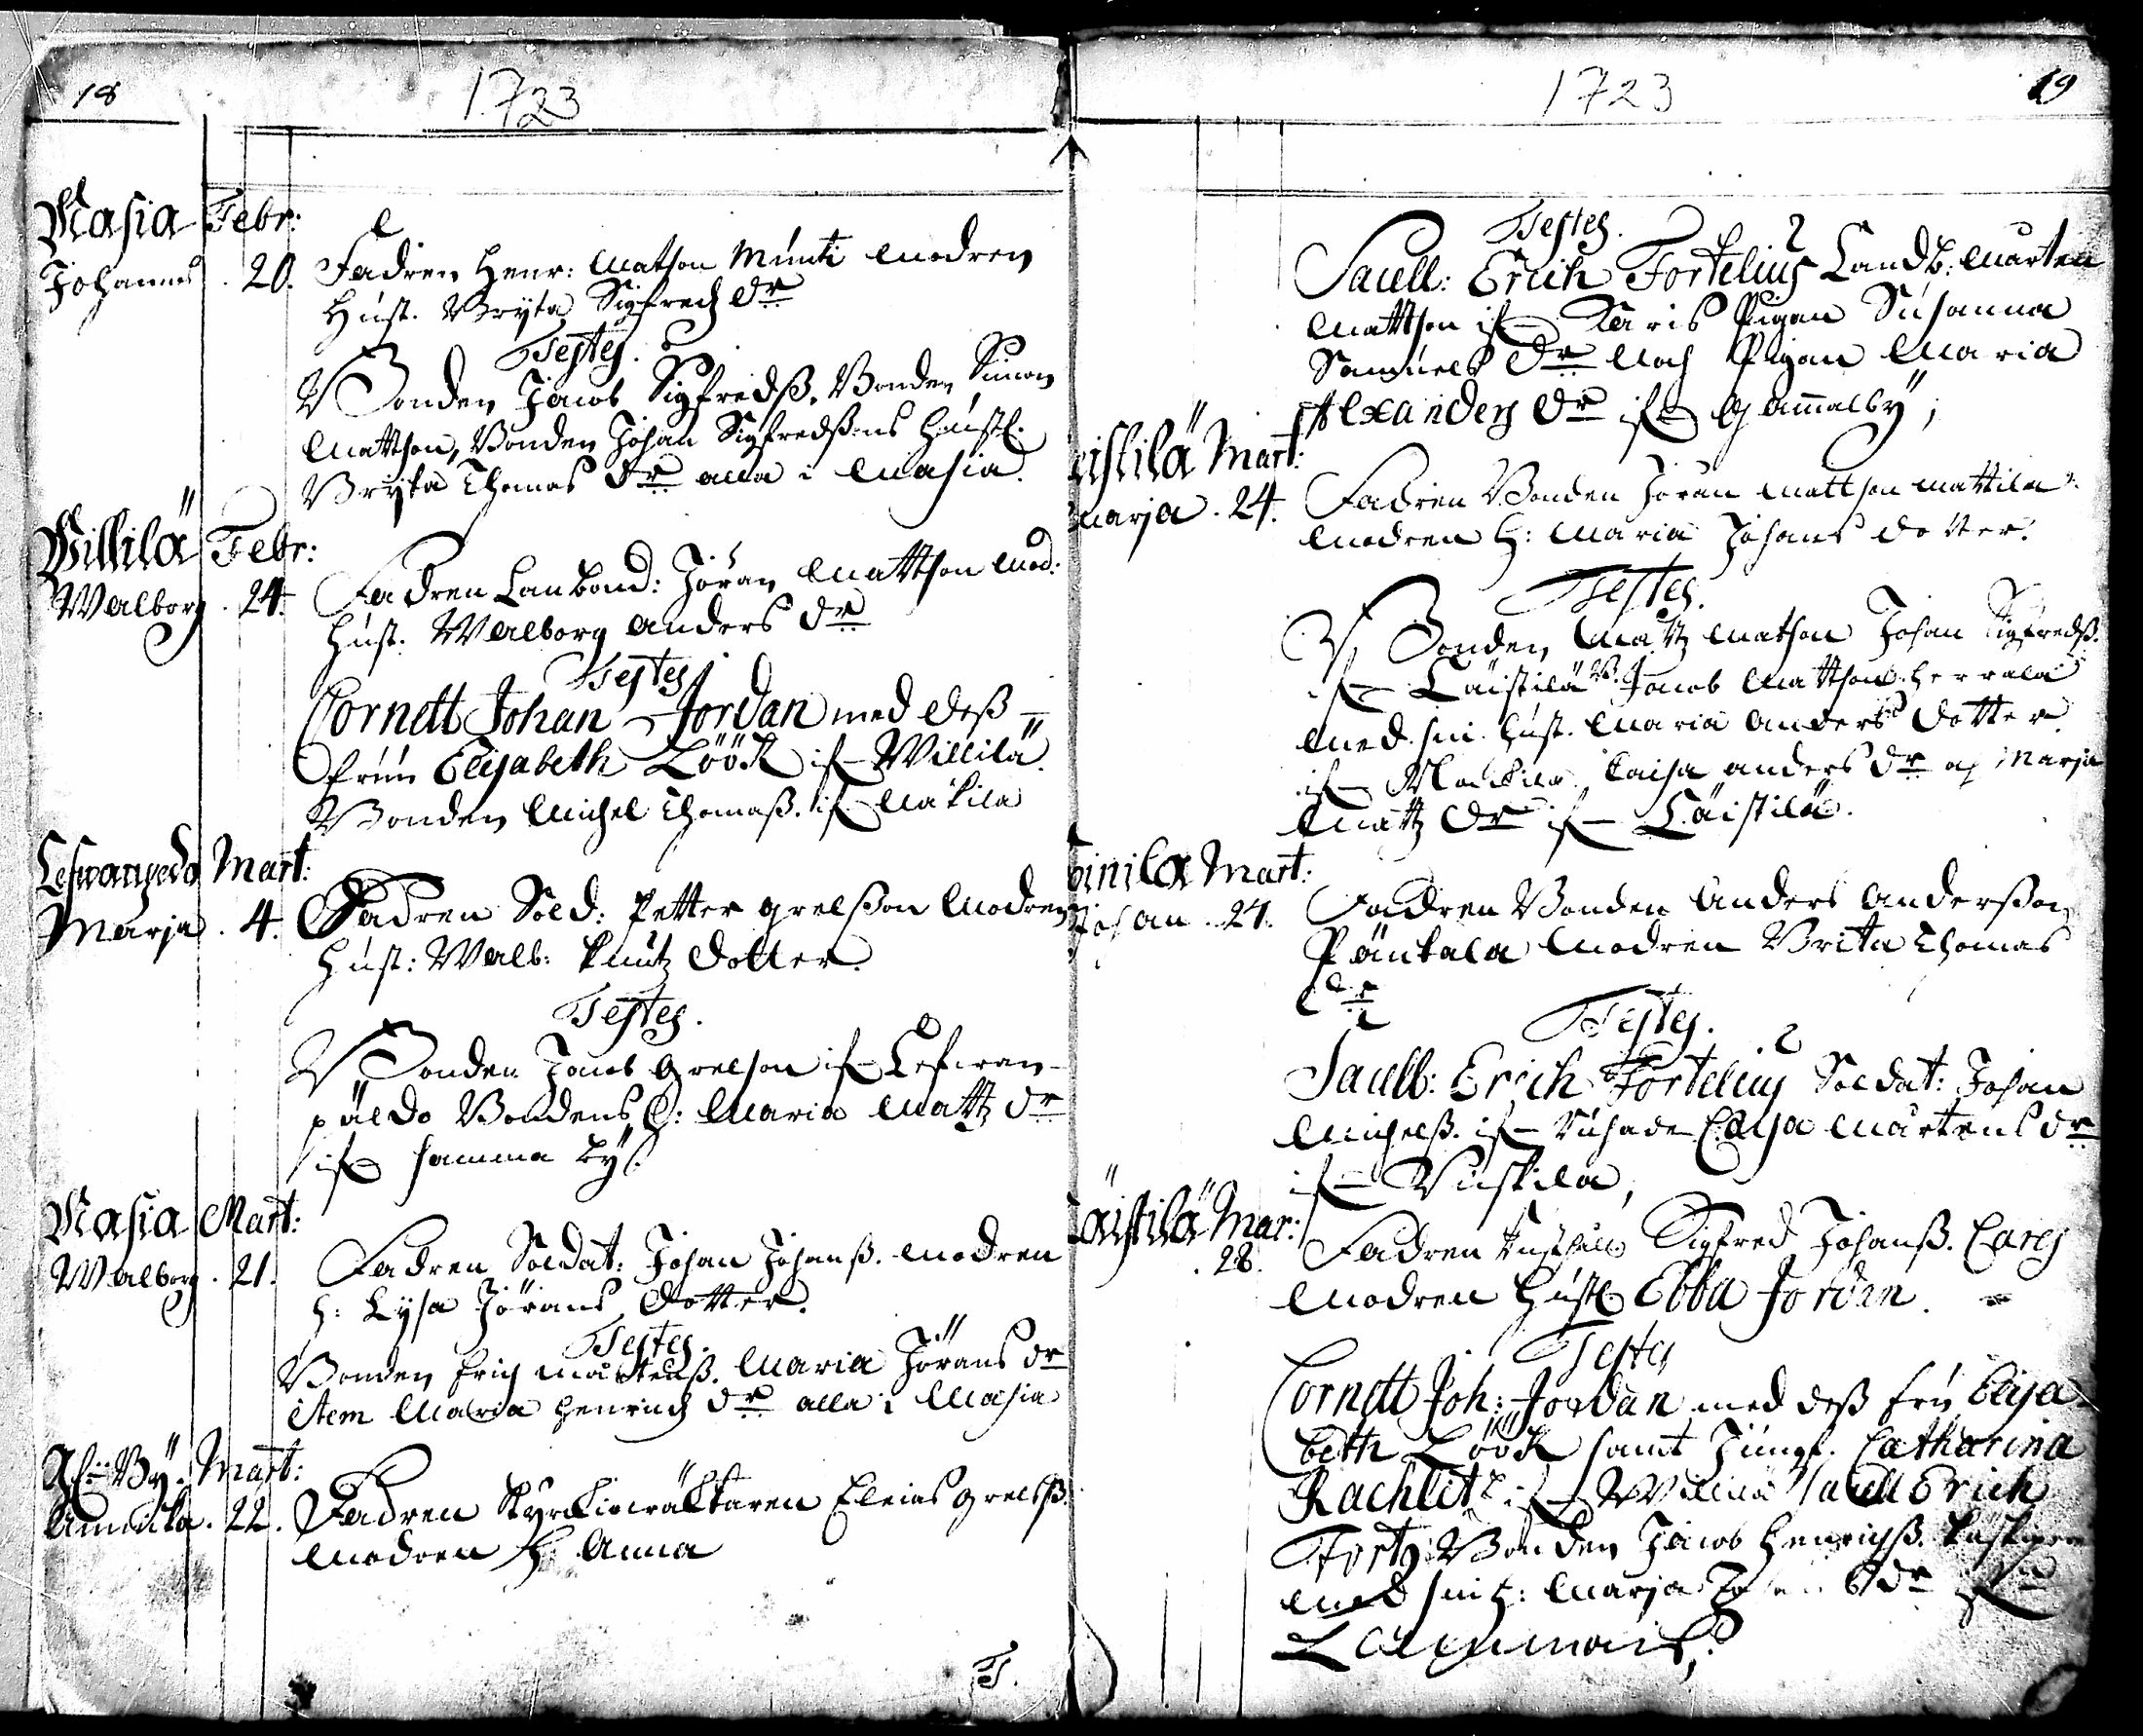 18
1723
Masia Febr:
Johannes . 20. Fadren Henr: Matson Munti Modren
Hust. Bryta Sigfredz dr
Testes.
Bonden Jacob Sigfredß. Bonden Simon
Mattson, Bonden Johan Sigfredßons Hustr.
Bryta Thomas dr alla i Masia.
Willilä Febr:
Walborg . 24. Fadren Lanbond: Jöran Mattson Mod:
Hust. Walborg Anders dr
Testes
Cornett Johan Jordan med deß
fruu Elisabeth Löök if Willilä.
Bonden Michel Thomaß. if Mäkilä
Mart:
Marja . 4. Fadren Sold: Petter Grelsson Modren
Hust: Walb: Knutz dotter.
Testes.
Bonden Jacob Grelson if Lefwan-
päldo Bondens H: Maria Mattz dr
if samma by.
Masia Mart:
Walborg . 21. Fadren Soldat: Johan Johanß. Modren
h: Lysa Jörans dotter.
Testes.
Bonden Erich Mårtenß. Maria Jörans dr
item Maria Henrich dr alla i Masia
By. Mart:
Annika . 22. Fadren Elias Grelsß.
Modren H: Anna
T.
1723
19
Testes.
Saell: Erich Fortelius Landb: Mårten
Mattson if Karis Pigan Susanna
Samuels dr och Pigan Maria
Alexanders dr if Gammalby;
istilä Mart:
Marja . 24. Fadren Bonden Jöran Mattson Mattila
Modren H: Maria Johans dotter.
Testes.
Bonden Mattz Matson Johan Sigfredß.
if Läistilä B. Jacob Mattson Herrala
med sin Hust. Maria Anders dotter
if Caisa Anders dr og Marja
Mattz dr if Läistilä.
inila Mart:
Johan . 27. Fadren Bonden Anders Andersson
Päukala Modren Brita Thomas
dr
Testes.
Saell: Erich Fortelius Soldat: Johan
Michelß. if Caisa Mårtens dr
if Wiskila,
Läistilä Mar:
. 28. Fadren Sigfred Johanß. Carg
Modren Hust. Ebba Jordan.
Testes
Cornett Joh: Jordan med deß fru Elisa-
beth Löök samt Jungf. Catharina
Rachlitz if Willilä Saell Erich
Fort: Bonden Jacob Henrichß.
med sin H: Marja dr if